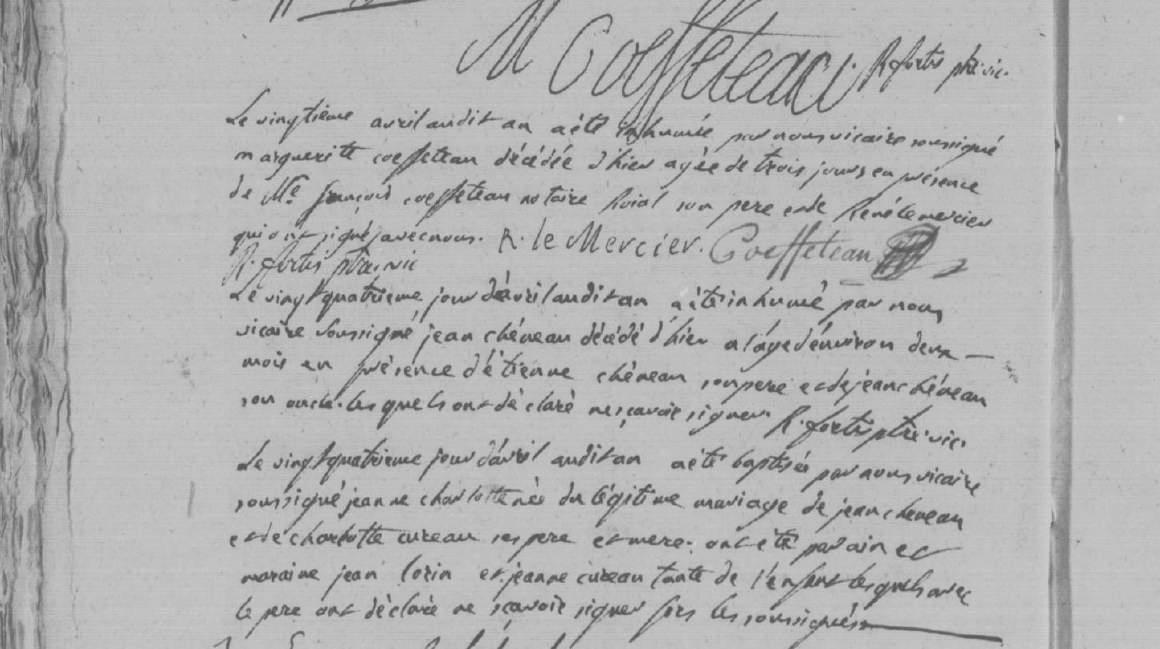 M Coeffeteau R. fortis ptre. vic.
Le vingtieme avril audit an a été inhumée par nous vicaire soussigné
margueritte coeffeteau décédée d'hier agée de trois jours en présence
de Me françois coeffeteau notaire Roial son pere et de René le mercier
qui ont signé avec nous. R. le Mercier. Coeffeteau
R. fortis ptre. vic
Le vingt quatrieme jour d'avril audit an a été inhumé par nous
vicaire soussigné jean chéneau décédé d'hier a l'age d'environ deux
mois en présence d'étienne chéneau son pere et de jean chéneau
son oncle. lesquels ont déclaré ne sçavoir signer R. fortis ptre. vic.
Le vingt quatrieme jour d'avril audit an a été baptisée par nous vicaire
soussigné jeanne charlotte née du légitime mariage de jean cheneau
et de charlotte cureau ses pere et mere. ont été parain et
maraine jean lorin et jeanne cureau tante de l'enfant lesquels avec
le pere ont déclaré ne sçavoir signer fors les soussignés